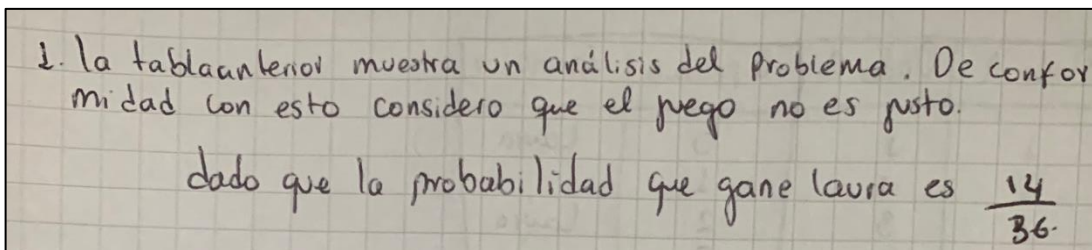 1. la tablaanterior muestra un análisis del problema. De confor
midad con esto considero que el juego no es justo.
dado que la probabilidad que gane laura es 14/36.